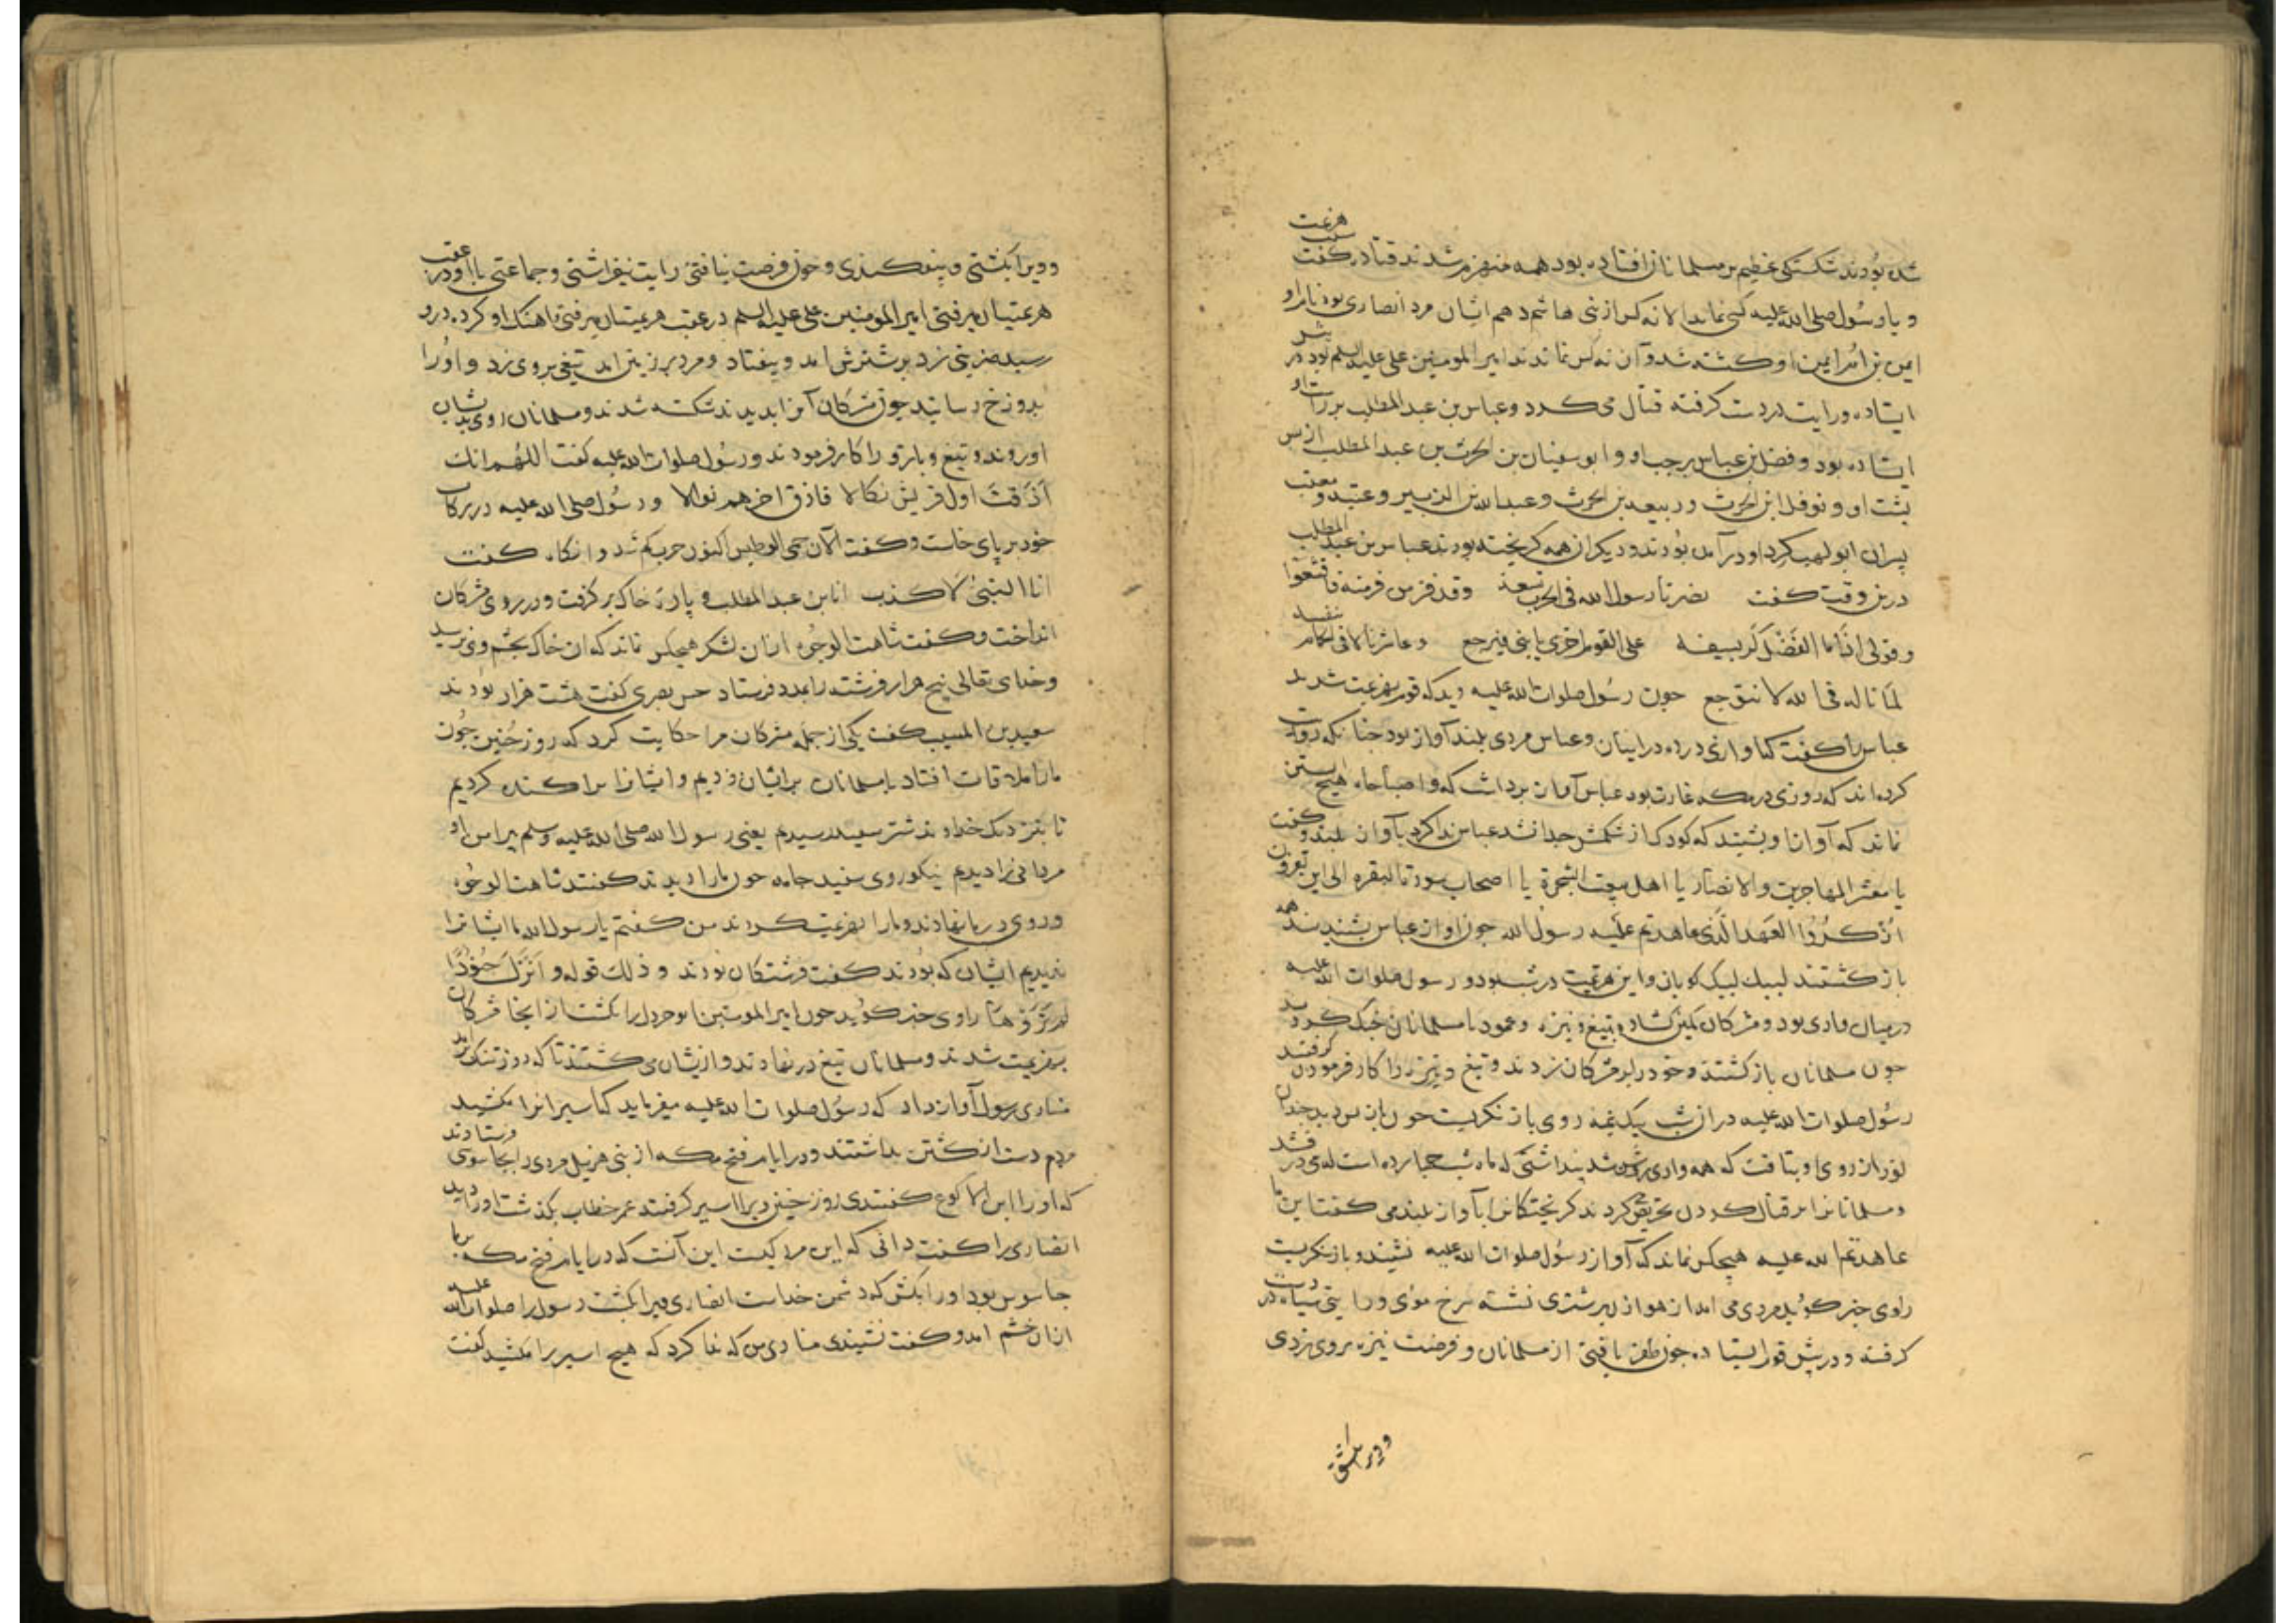 شده بودند شکستگی عظیم بر مسلمانان افتاده بود همه منهزم شدند قتاده گفت سبب هزیمت
و با رسول صلی الله علیه کسی نماند الا نه کس از بنی هاشم دهم ایشان مرد انصاری بود نام او
ایمن بن ام ایمن او کشته شد و آن نه کس نماندند امیر المومنین علی علیه السلم بود در پیش
ایستاده و رایت در دست گرفته قتال می کرد و عباس بن عبد المطلب بر راست او
ایستاده بود و فضل بن عباس بر چپ او و ابو سفیان بن الحرث بن عبد المطلب از پس
پشت او و نوفل ابن الحرث و ربیعه بن الحرث و عبد الله بن الزبیر و عتبه و معتب
پسران ابو لهب کرد او در آمده بودند و دیگران همه گریخته بودند عباس بن عبد المطلب
درین وقت گفت نصرنا رسول الله فی الحرب تسعة وقد فر من فر منه فاقشعوا
و قولی اذا ما الفضل کر بسیفه علی القوم اخری یا بنی فیرجع و عاشرنا لاقی الحمام بنفسه
لما ناله فی الله لا یتوجع چون رسول صلوات الله علیه دید که قوم بهزیمت شدند
عباس را گفت کاوازی در ده در ایشان و عباس مردی بلند آواز بود چنانکه روایت
کرده اند که روزی در مکه غارت بود عباس آواز برداشت که وا صباحاه هیچ آبستن
نماند که آواز او بشنید که کودک از شکمش جدا نشد عباس ندا کرد بآواز بلند و گفت
یا معشر المهاجرین والانصار یا اهل بیعت الشجرة یا اصحاب سورة البقره الی این تفرون
اذکروا العهد الذی عاهدتم علیه رسول الله چون آواز عباس بشنیدند همه
باز گشتند لبیک لبیک گویان و این هزیمت در شب بود و رسول صلوات الله علیه
در میان وادی بود و مشرکان کمین گشاده و بتیغ و نیزه و عمود با مسلمانان جنگ کردند
چون مسلمانان باز گشتند و خود را بر مشرکان زدند و تیغ و نیزه را کار فرمودن گرفتند
رسول صلوات الله علیه در آن شب بیک نیمه روی باز نگریست چون باز پس دید چندان
نور از روی او بتافت که همه وادی روشن شد پنداشتی که ماه شب چهارده است
و مسلمانان را بر قتال کردن تحریض کردند گریختگانرا بآواز بلند می گفت این ما
عاهدتم الله علیه هیچکس نماند که آواز رسول صلوات الله علیه نشنید و باز نگریست
راوی خبر گوید مردی می آمد از هوازن بر شتری نشسته سرخ موی و رایتی سیاه در دست
گرفته و در پیش قوم ایستاده چون ظفر یافتی از مسلمانان و فرصت نیزه بر وی زدی
ویرا بکشتی
ویرا بکشتی و بیفکندی و چون فرصت نیافتی رایت بیفراشتی و جماعتی با او در عقب
هزیمتیان میرفتی امیر المومنین علی علیه السلم در عقب هزیمتیان میرفتی آهنگ او کرد در و
رسید ضربتی زد بر شترش آمد و بیفتاد و مرد بر زمین آمد تیغی بر وی زد و او را
بدوزخ رسانید چون مشرکان آنرا بدیدند شکسته شدند و مسلمانان روی بدیشان
آوردند و تیغ و بازو را کار فرمودند و رسول صلوات الله علیه گفت اللهم انک
اذقت اول قریش نکالا فاذق اخرهم نوالا و رسول صلی الله علیه در رکاب
خود بر پای خاست و گفت الآن حمی الوطیس اکنون حرب گرم شد و انگاه گفت
انا النبی لا کذب انا بن عبد المطلب و پارهٔ خاک بر گرفت و در روی مشرکان
انداخت و گفت شاهت الوجوه از ان لشکر هیچکس نماند که ان خاک بچشم وی نرسید
و خدای تعالی پنج هزار فرشته را بمدد فرستاد حسن بصری گفت هشت هزار بودند
سعید بن المسیب گفت یکی از جمله مشرکان مرا حکایت کرد که روز حنین چون
ما را ملاقات افتاد با مسلمانان بر ایشان زدیم و ایشانرا پراکنده کردیم
تا بنزدیک خداوند شتر سپید رسیدیم یعنی رسول الله صلی الله علیه وسلم پیرامن او
مردانی را دیدیم نیکو روی سفید جامه چون ما را دیدند گفتند شاهت الوجوه
و روی در ما نهادند و ما را بهزیمت کردند من گفتم یا رسول الله ما ایشانرا
ندیدیم ایشان که بودند گفت فرشتگان بودند و ذلک قوله و انزل جنودا
لم تروها راوی خبر گوید چون امیر المومنین ابو جرول را بکشت از انجا مشرکان
بهزیمت شدند و مسلمانان تیغ در نهادند و ازیشان می کشتند تا که روز تنگ آمد
منادی رسول آواز داد که رسول صلوات الله علیه میفرماید که اسیرانرا مکشید
مردم دست از کشتن بداشتند و در ایام فتح مکه از بنی هذیل مردی را بجاسوسی فرستادند
که او را ابن الاکوع گفتندی روز حنین ویرا اسیر گرفتند عمر خطاب بگذشت او را دید
انصاری را گفت دانی که این مرد کیست این آنست که در ایام فتح مکه بر ما
جاسوس بود او را بکش که دشمن خداست انصاری ویرا بکشت رسول را صلوات الله علیه
از ان خشم آمد و گفت نشنیدی منادی من که ندا کرد که هیچ اسیر را مکشید گفت